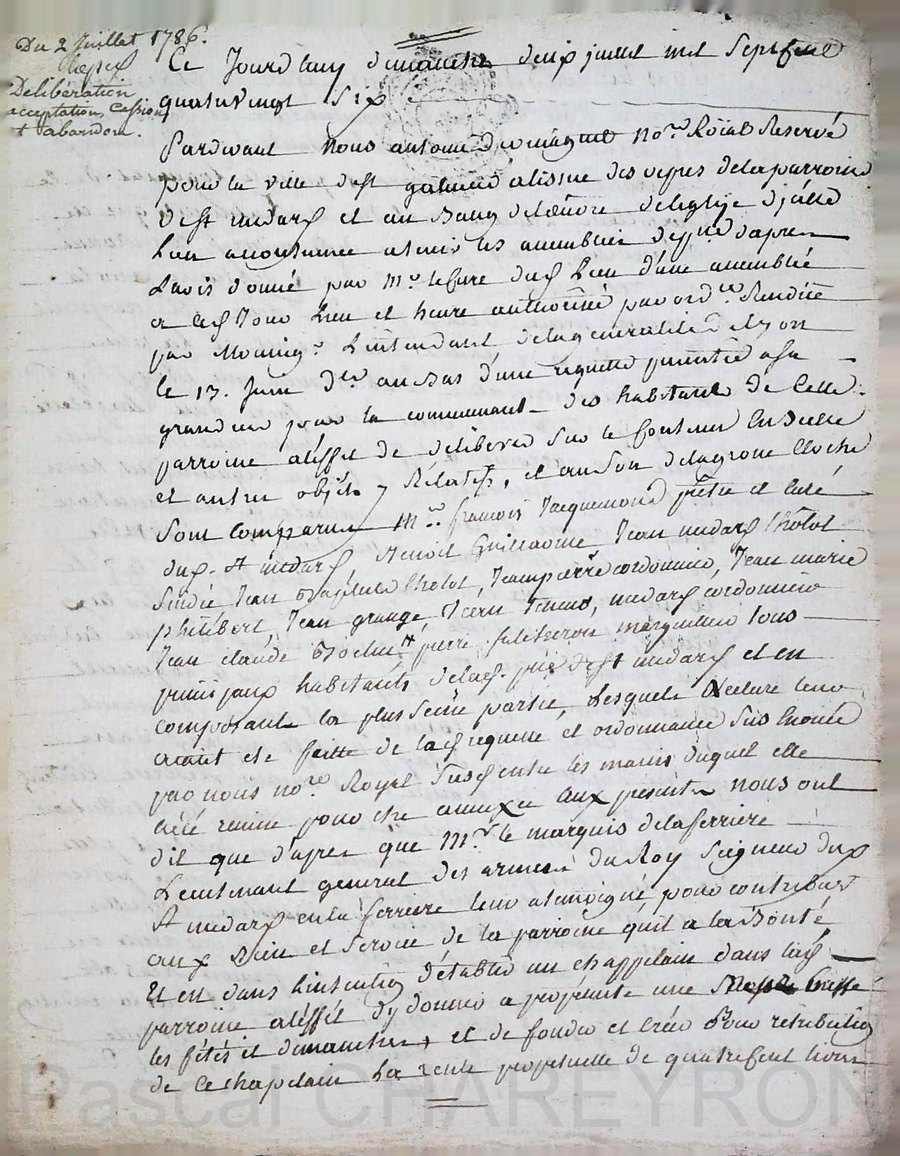 Du 2 Juillet 1786.
Deliberation
acceptation, Cession,
et abandon.
Ce Jourdhuy dimanche deux juillet mil sept cent
quatrevingt six
Pardevant Nous antoine No.re Roïal Reservé
pour la ville de St galmier a lissue des vepres de la parroisse
de St medard et au Banc de l'œuvre de leglise dicelle
Lieu accoutumé a tenir les assemblées d'apres
Lavis donné par Mr le Curé dud. Lieu d'une assemblée
a ces Jour Lieu et heure authorisée par ord.ce Rendüe
par Monseig.r L'intendant de la generalité de Lyon
le 17. Juin d.er au Bas d'une requette presentée a sa
grandeur pour la communauté des habitants de Cette
parroisse a leffet de deliberer sur le Contenu En Icelle
et autres objets y Relatifs, et au son de la grosse Cloche
Sont comparus Mre françois Jacquemond prêtre et Curé
dud. St medard, Benoit Guillaume, Jean medard Cholot
Sindic Jean Baptiste Cholot, Jean pierre cordonnier, Jean marie
philibert, Jean grange, medard cordonnier
Jean claude pierre marguillier tous
principaux habitants de lad. p.sse de St medard et en
composant la plus seine partie, Lesquels Lecture leur
aiant eté faitte de lad. requette et ordonnance sus Enoncée
par nous no.re Royal Susd. entre les mains duquel elle
a été remise pour être annexée aux presentes nous ont
dit que d'apres que Mr le marquis de la ferriere
Lieutenant general des armées du Roy Seigneur dud.
St medard et la ferriere leur a temoigné pour contribuer
au Bien et Service de la parroisse qu'il a la Bonté
Et est dans L'intention d'établir un chappelain dans lad.
parroisse a leffet d'y donner a perpetuité une Messe Basse
les fêtes et dimanches, et de fonder et créer pour retribution
de ce chapelain La rente perpetuelle de quatre cent livres
Pascal CHAREYRON